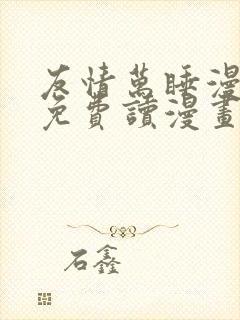 友情萬睡漫
免費讀漫畫
石鑫